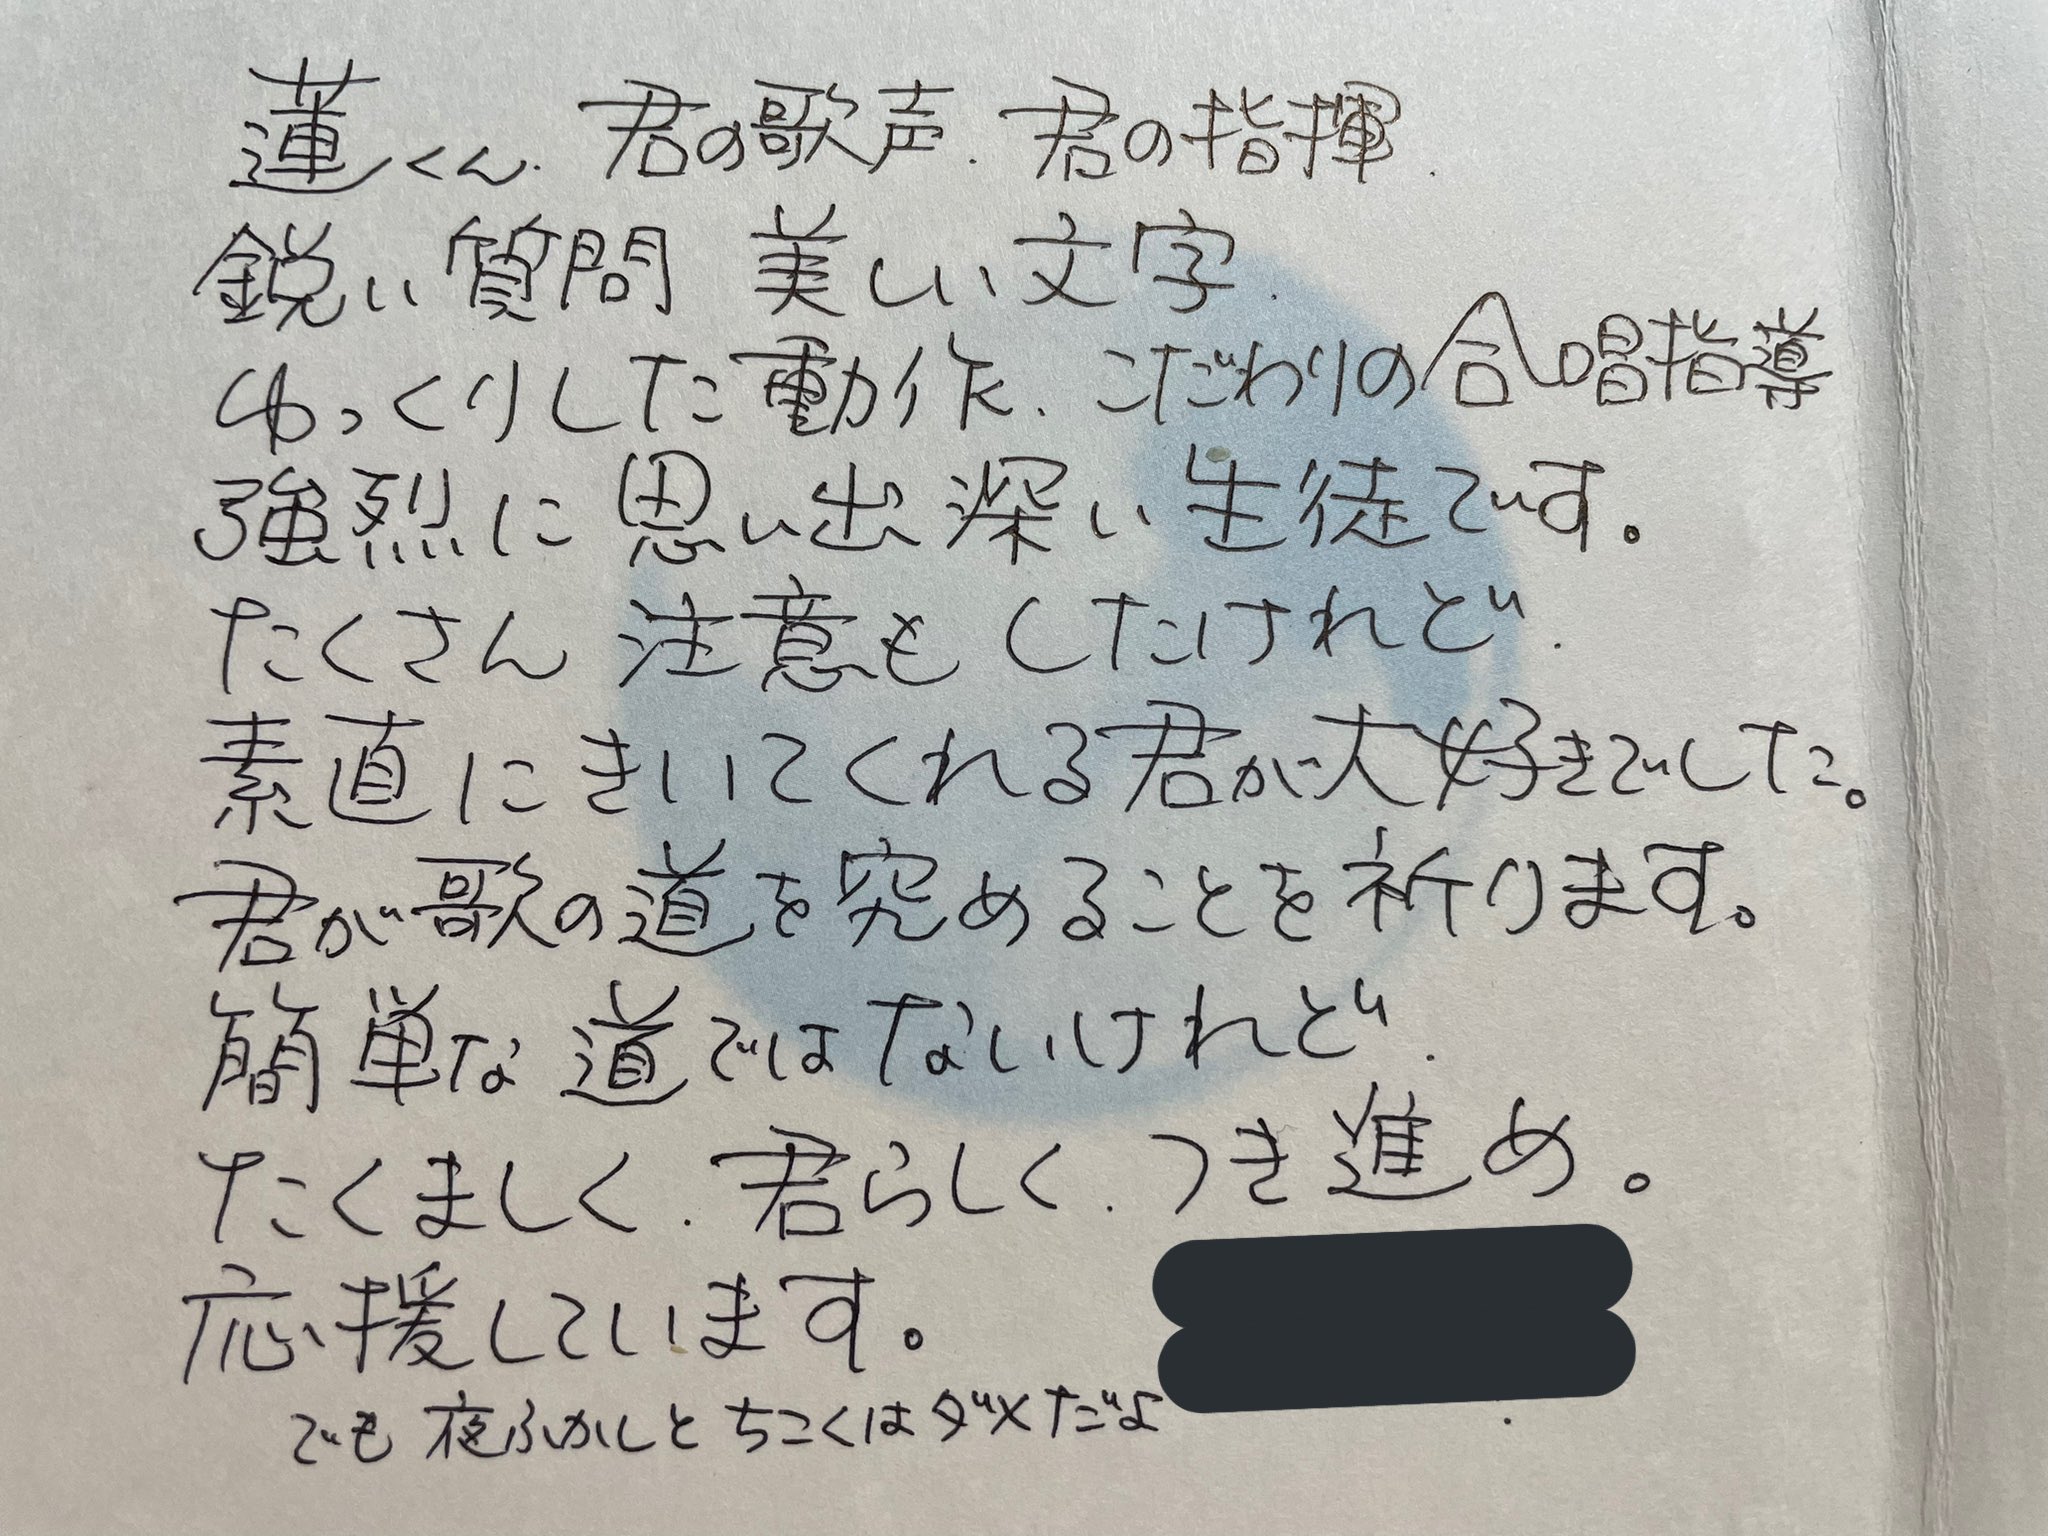 蓮くん、君の歌声、君の指揮、
鋭い質問 美しい文字、
ゆっくりした動作、こだわりの合唱指導
強烈に思い出深い生徒です。
たくさん注意もしたけれど、
素直にきいてくれる君が大好きでした。
君が歌の道を究めることを祈ります。
簡単な道ではないけれど、
たくましく、君らしく、つき進め。
応援しています。
でも夜ふかしとちこくはダメだよ